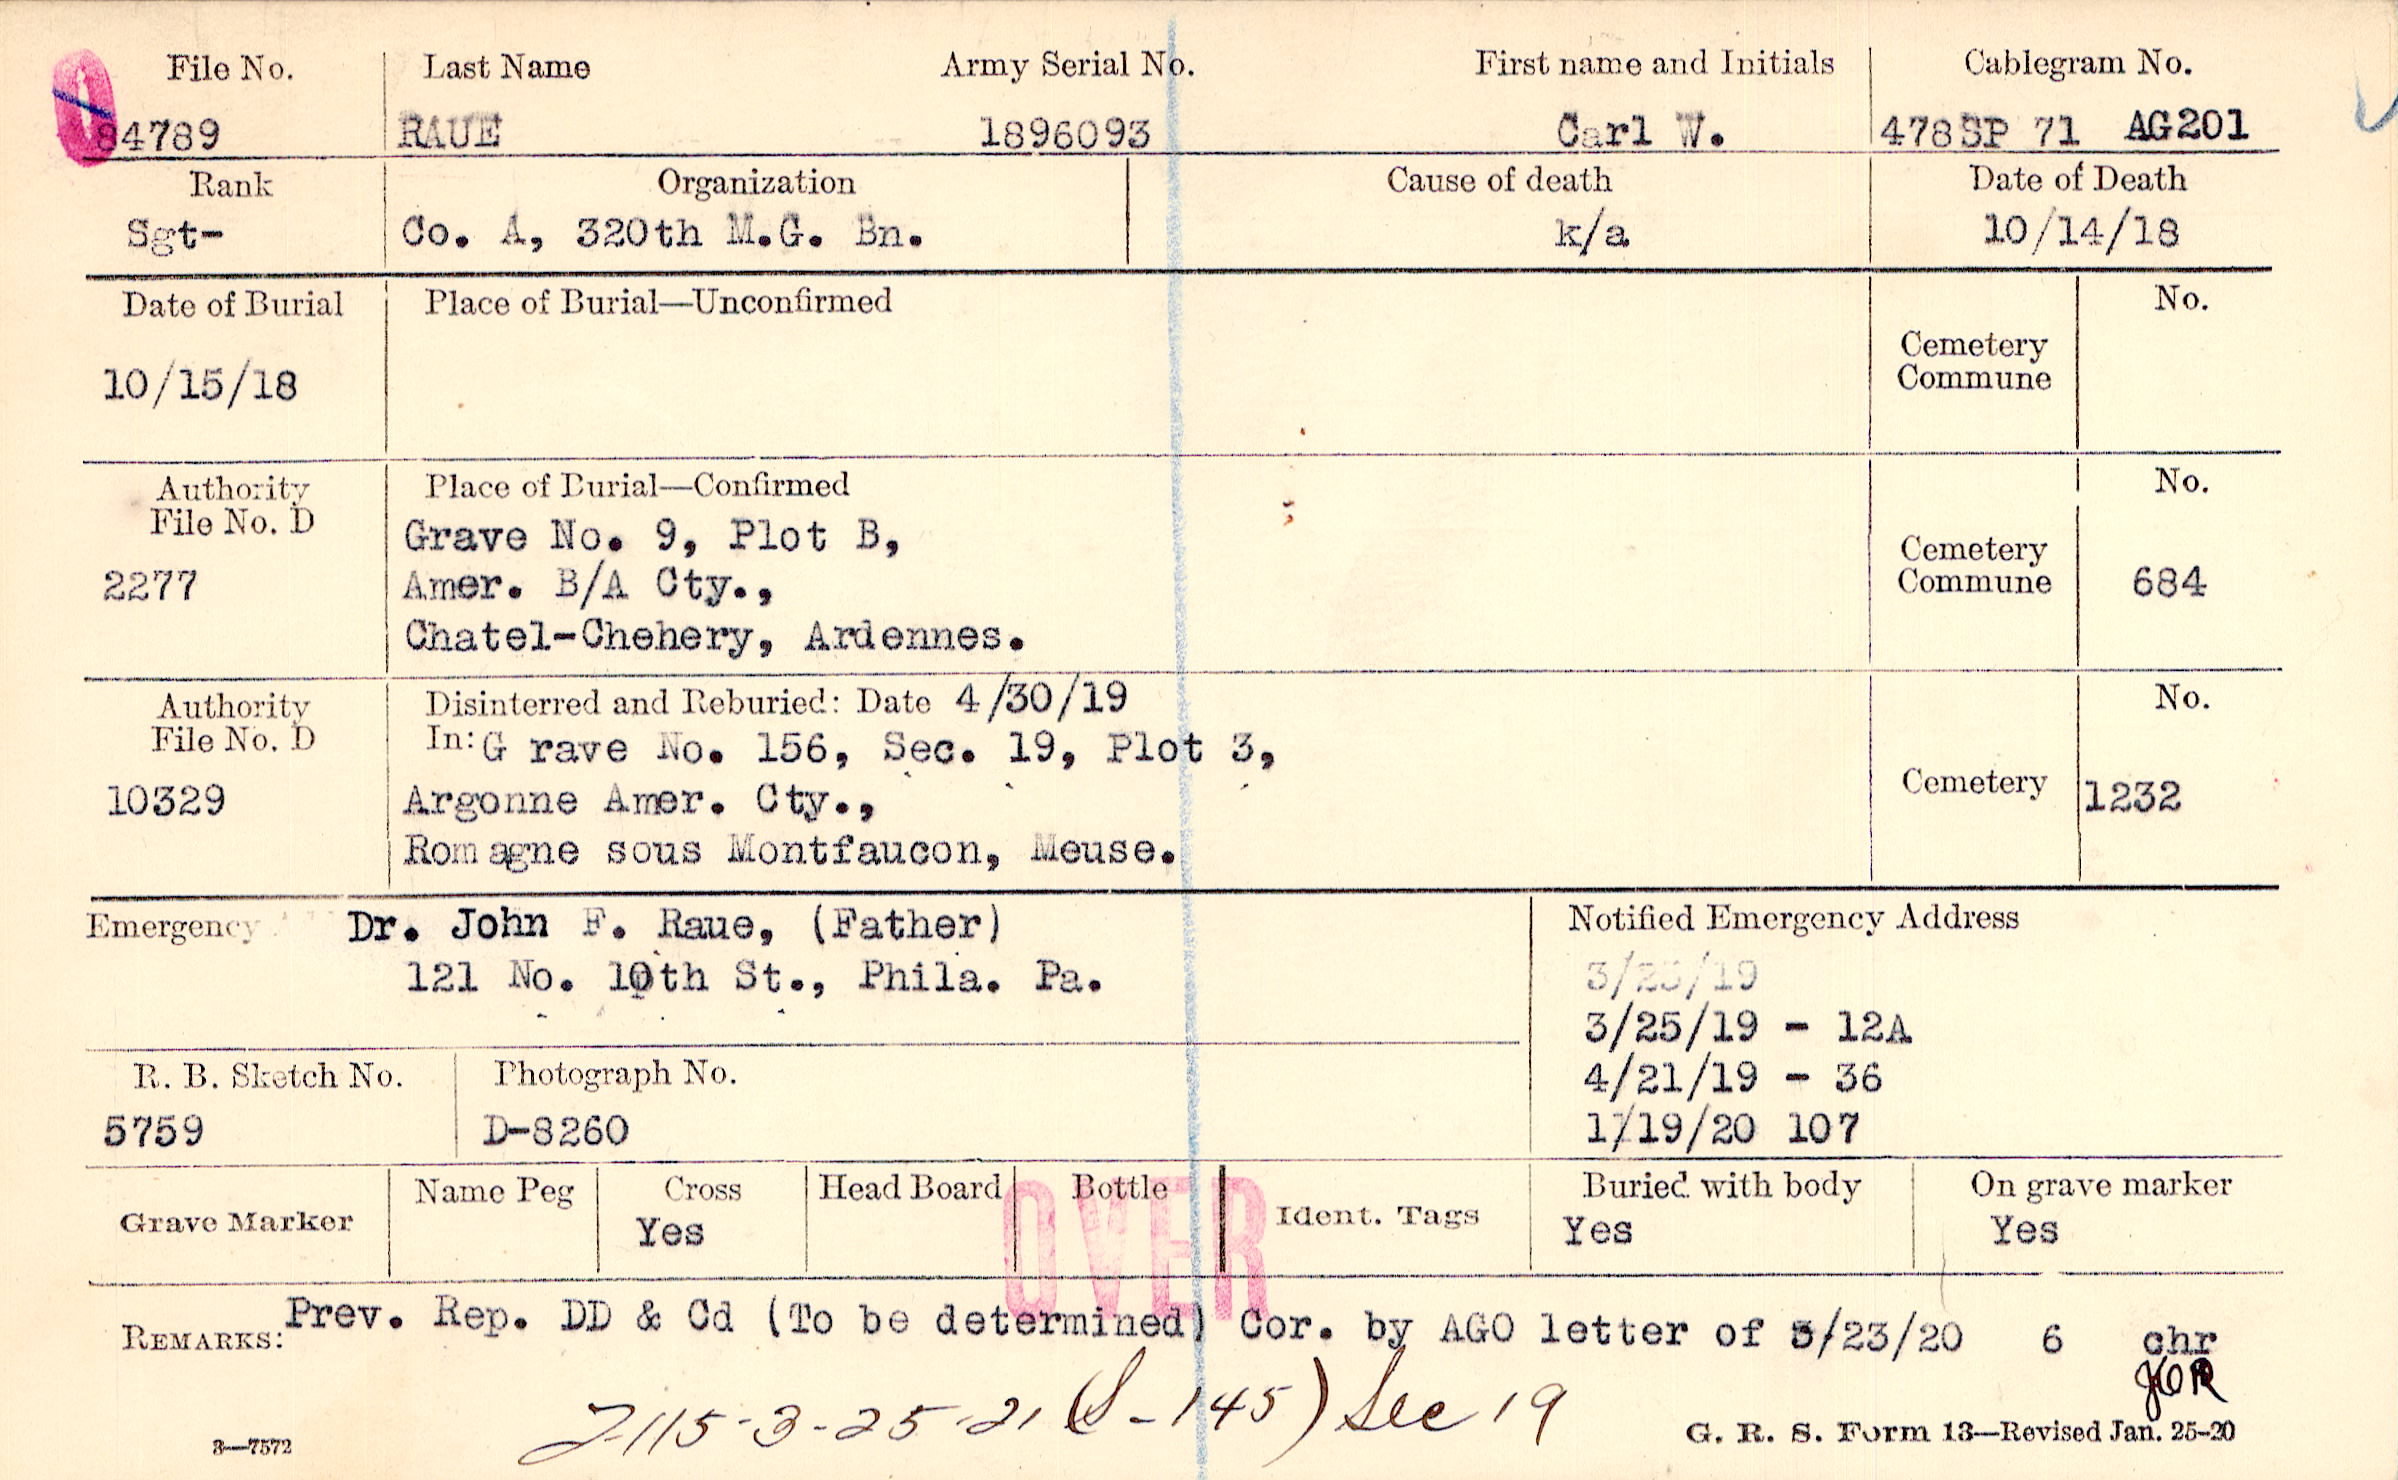 File No. Last Name Army Serial No. First name and Initials Cablegram No.
84789 RAUE 1896093 Carl W. 478SP 71 AG201
Rank Organization Cause of death Date of Death
Sgt- Co. A, 320th M.G. Bn. k/a 10/14/18
Date of Burial Place of Burial—Unconfirmed No.
Cemetery
Commune
10/15/18
Authority Place of Burial—Confirmed No.
File No. D Grave No. 9, Plot B,
Cemetery
2277 Amer. B/A Cty., Commune 684
Chatel-Chehery, Ardennes.
Authority Disinterred and Reburied: Date 4/30/19 No.
File No. D In: G rave No. 156, Sec. 19, Plot 3,
10329 Argonne Amer. Cty., Cemetery 1232
Romagne sous Montfaucon, Meuse.
Emergency Dr. John F. Raue, (Father) Notified Emergency Address
121 No. 10th St., Phila. Pa. 3/25/19
3/25/19 - 12A
R. B. Sketch No. Photograph No. 4/21/19 - 36
5759 D-8260 1/19/20 107
Grave Marker Name Peg Cross Head Board Bottle Ident. Tags Buried with body On grave marker
Yes Yes Yes
OVER
REMARKS: Prev. Rep. DD & Cd (To be determined) Cor. by AGO letter of 3/23/20 6 chr
JCR
2-115-3-25-21 (S-145) Sec 19
3—7572 G. R. S. Form 13—Revised Jan. 25-20